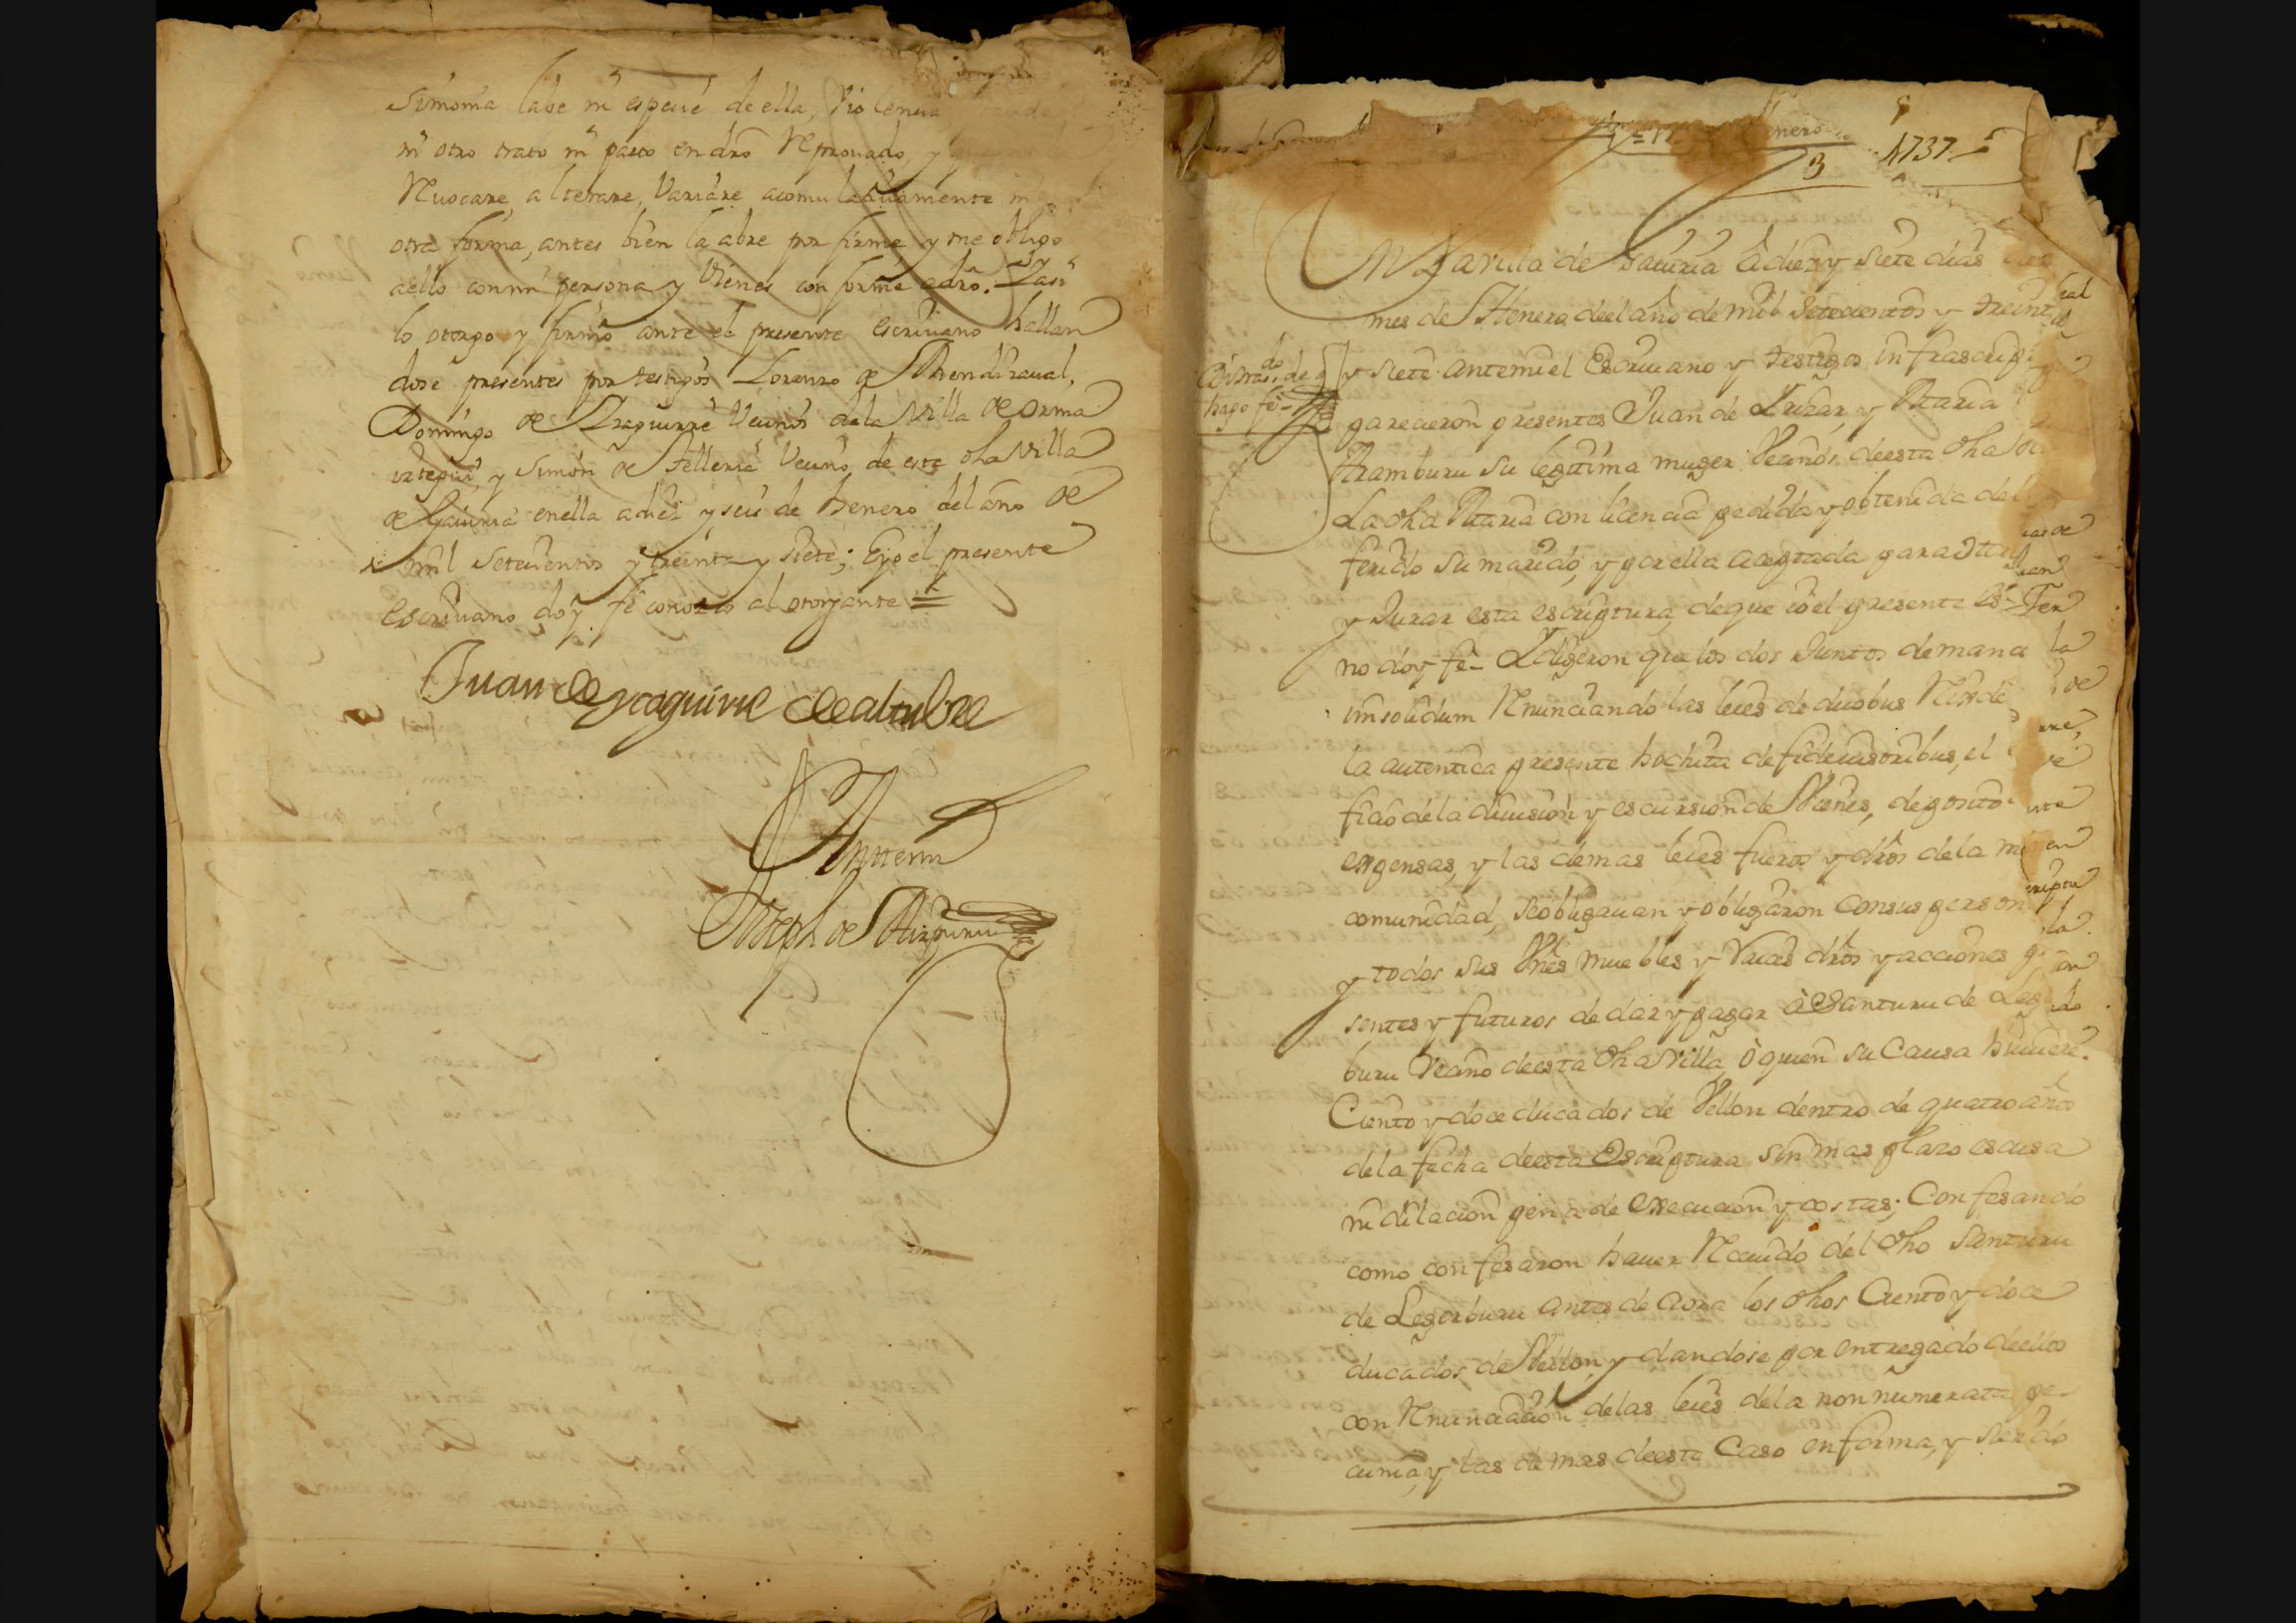 Simonia labe ni especie de ella, violencia
ni otro trato ni pacto en dro Reprouado, y
Reuocare, alterare, Variare acomulatiuamente ni
otra forma, antes bien la abre por firme, y me obligo
aello con mi persona y Vienes conforme adro. Y asi
lo otorgo y firmo ante el presente escriuano hallan
dose presentes por testigos Lorenzo de Mendizaual,
Domingo de Yraguirre Vecinos dela Villa de Orma
iztegui, y Simon de Telleria Vecino de esta dha Villa
de Gauiria enella adiez y seis de henero del año de
mil Setecientos y treinta y siete; Eyo el presente
escriuano doy fe conozco al otorgante =
Juan de Yraguirre de altube
Antemi
Joseph de Aizpuru
henero
4737
3
En La villa de Gauiria à diez y siete dias
mes de Henero deel año de mil Setecientos y treint
y siete. antemi el Escriuano y testigos infrascrip
parecieron presentes Juan de Yrizar, y Maria
Aramburu su legitima muger Vecinos deesta dha
La dha Maria con licencia pedida y obtenida del
ferido su marido, y por ella aceptada para
y Jurar esta escriptura, deque io el presente es
no doy fe_ Y dijeron que los dos Juntos demanc
insolidum Renunciando las leies de duobus Reis de
la autentica presente hochita de fideiusoribus, el
ficio dela diuision y escursion de Vienes, deposito
expensas, y las demas leies fueros y dros dela m
comunidad, se obligauan y obligaron con sus person
y todos sus Vies muebles y Raices dros y acciones p
sentes y futuros de dar y pagar à Santuru de Leg
buru Vecino deesta dha Villa, ò quien su Causa huuiere.
Ciento y doce ducados de Vellon dentro de quatro años
dela fecha deesta Escriptura sin mas plazo escusa
ni dilacion pena de execucion y costas; Confesando
como confesaron hauer Receuido del dho Santuru
de Legorburu antes de aora los dhos Ciento y doce
ducados de Vellon, y dandose por entregado deellos
con Renunciacion delas leies dela non numerata pe-
cunia, y las demas deeste Caso en forma, y siendo
hago fe-